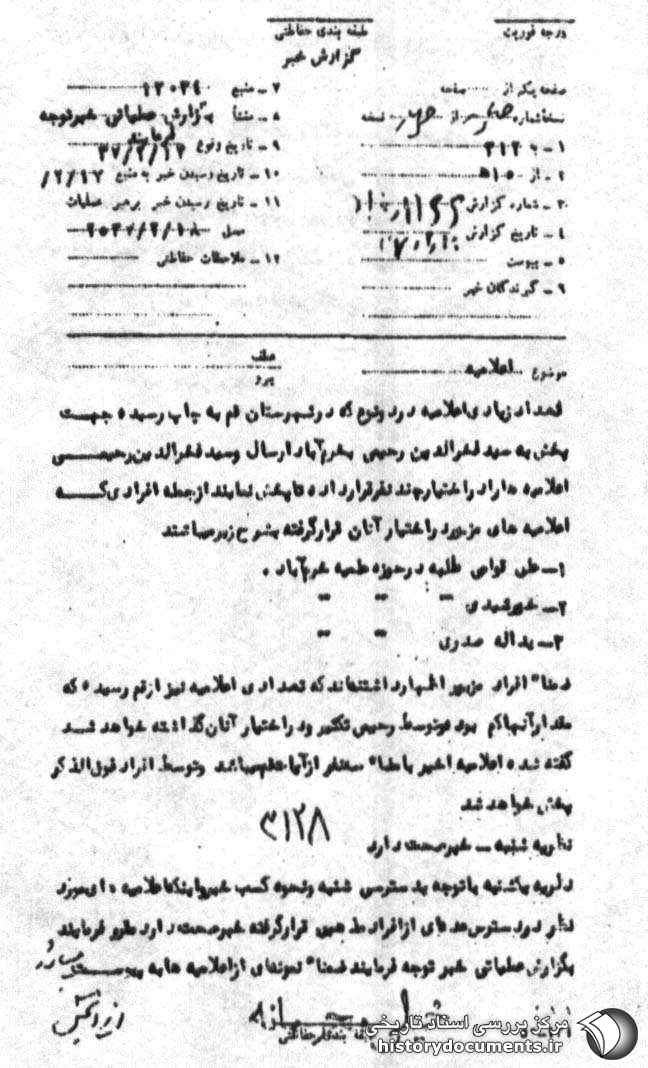 درجه فوریت
طبقه بندی حفاظتی
گزارش خبر
صفحه یک از صفحه
نسخه شماره از نسخه
۱ـ به ۳۱۲
۲ـ از ۵۱۵
۳ـ شماره گزارش
۴ـ تاریخ گزارش
۵ـ پیوست
۶ـ گیرندگان خبر
۷ـ منبع ۱۲۰۳۴
۸ـ منشأ بگزارش عملیاتی خبر توجه فرمایند
۹ـ تاریخ وقوع ۳۷/۲/۱۷
۱۰ـ تاریخ رسیدن خبر به منبع ۲/۱۷/
۱۱ـ تاریخ رسیدن خبر برهبر عملیات
محل ۲۵۳۷/۲/۱۸
۱۲ـ ملاحظات حفاظتی
موضوع اعلامیه
عطف
پیرو
تعداد زیادی اعلامیه در دو نوع که در شهرستان قم به چاپ رسیده جهت
پخش به سید فخرالدین رحیمی بخرم‌آباد ارسال و سید فخرالدین رحیمی
اعلامیه ها را در اختیار چند نفر قرار داده تا پخش نمایند از جمله افرادی که
اعلامیه های مزبور در اختیار آنان قرار گرفته بشرح زیر میباشند
۱ـ علی قوامی طلبه در حوزه علمیه خرم‌آباد .
۲ـ خورشیدی " " "
۳ـ یداله صدری " "
ضمنا" افراد مزبور اظهار داشته‌اند که تعدادی اعلامیه نیز از قم رسیده که
مقدار آنها کم بوده و توسط رحیمی تکثیر و در اختیار آنان گذاشته خواهد شد
گفته شده اعلامیه اخیر با مضا" سه نفر از آیات قم میباشد و توسط افراد فوق الذکر
پخش خواهد شد
نظریه شنبه ـ خبر صحت دارد
۳۱۲۸
نظریه یکشنبه با توجه بدسترسی شنبه و نحوه کسب خبر و اینکه اعلامیه های مزبور
در دسترس عده‌ای از افراد مذهبی قرار گرفته خبر صحت دارد مقرر فرمایند
بگزارش عملیاتی خبر توجه فرمایند ضمنا" نمونه‌ای از اعلامیه ها به پیوست
طبقه بندی حفاظتی
مرکز بررسی اسناد تاریخی
historydocuments.ir